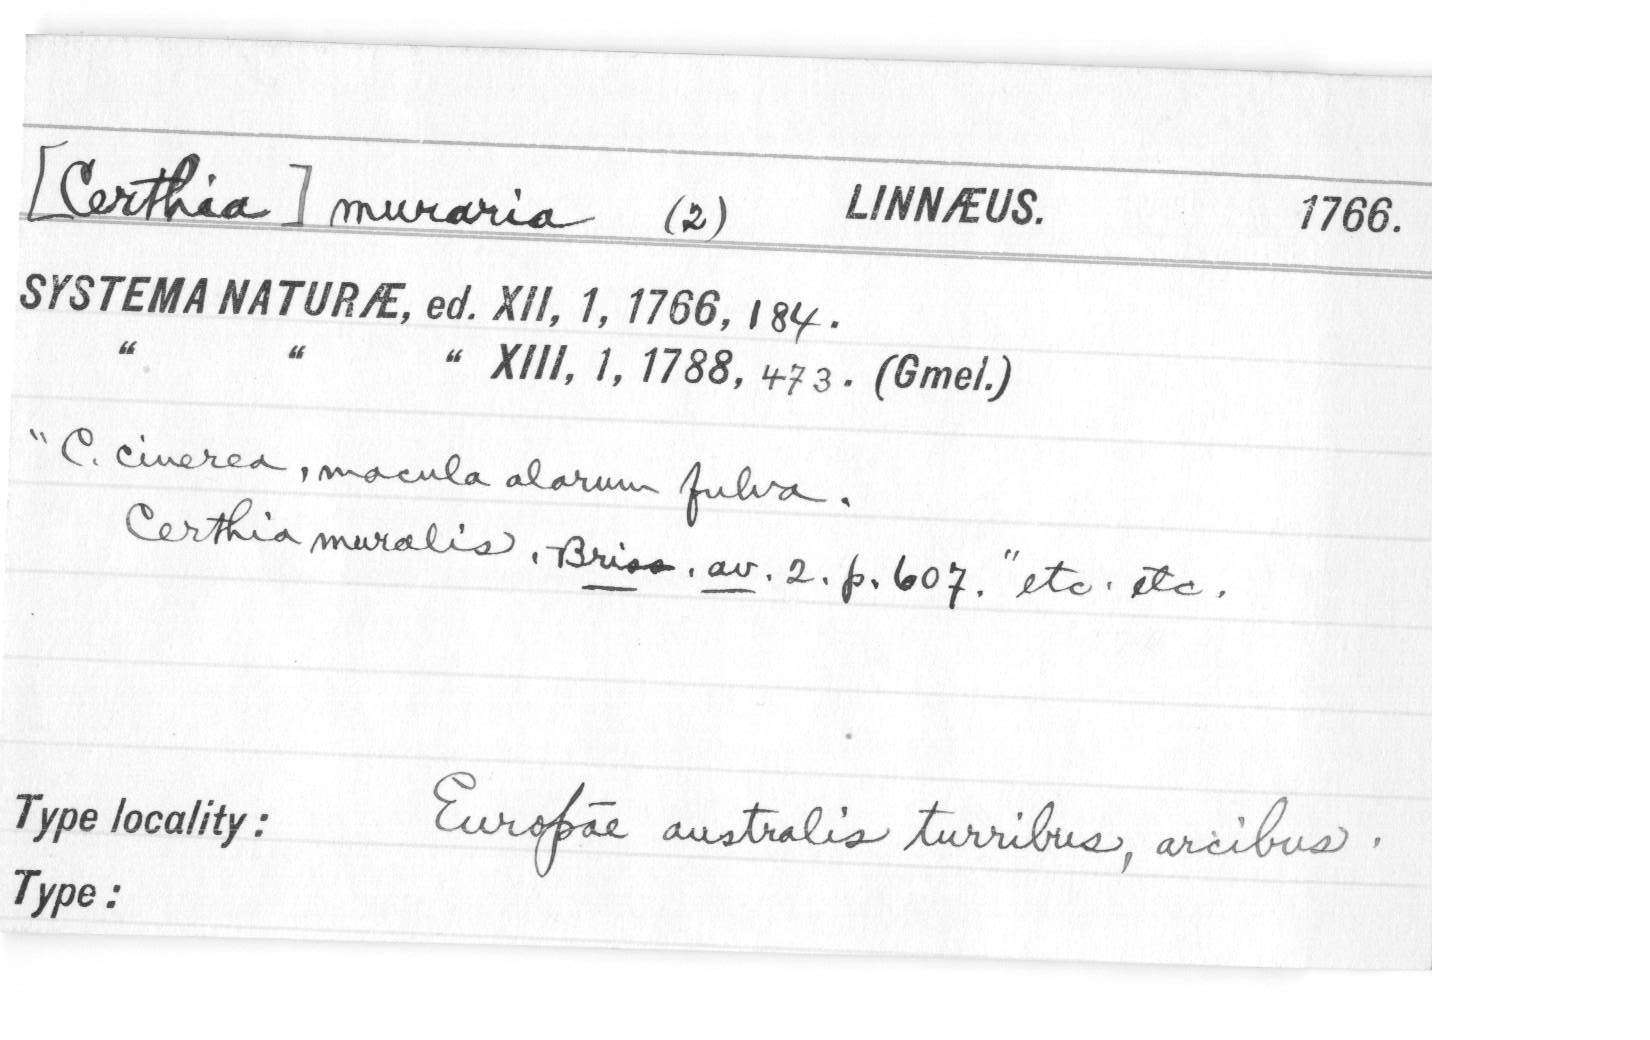 [Certhia] muraria (2) LINNÆUS. 1766.
SYSTEMA NATURÆ, ed. XII, 1, 1766, 184.
“ “ “ XIII, 1, 1788, 473. (Gmel.)
"C. cinerea, macula alarum fulva.
Certhia muralis. Briss. av. 2. p. 607." etc. etc.
Type locality: Europae australis turribus, arcibus.
Type: